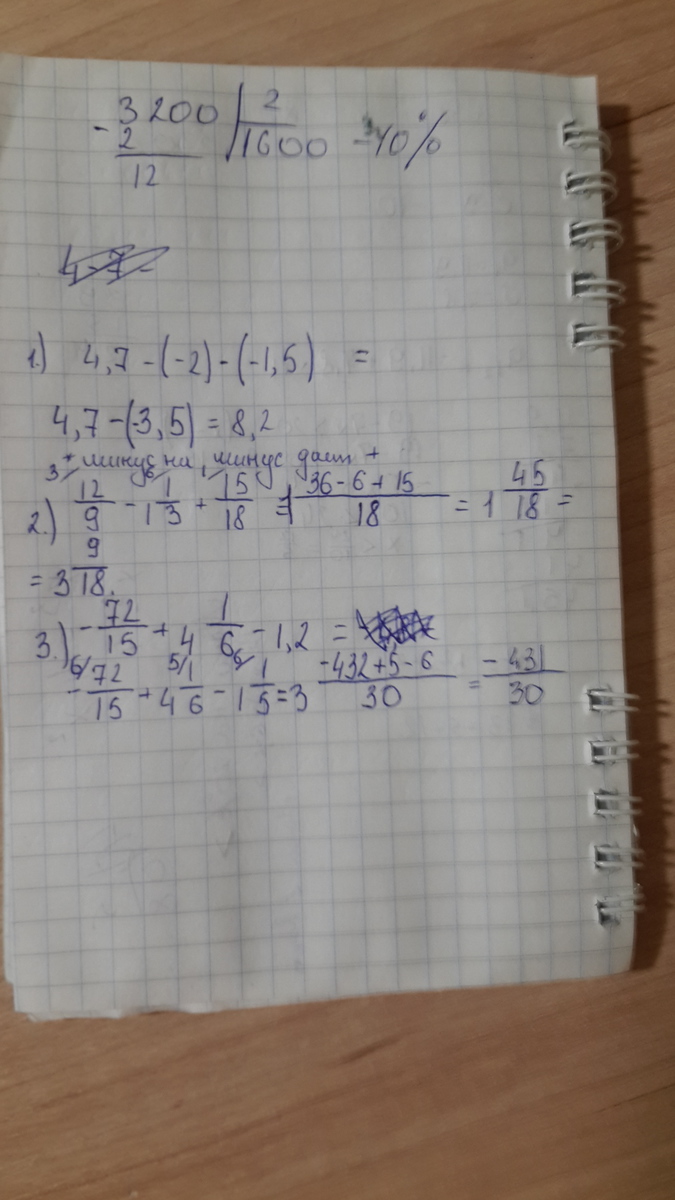 3200 | 2
- 2 1600 - 40%
12
4-7-
1.) 4,7 - (-2) - (-1,5) =
4,7 - (-3,5) = 8,2
минус на минус дает +
2.) 3/ 12/9 - 1 6/ 1/3 + 1/ 15/18 = 1 36 - 6 + 15/18 = 1 45/18 =
= 3 9/18.
3.) - 72/15 + 4 1/6 - 1,2 =
- 6/ 72/15 + 4 5/ 1/6 - 1 6/ 1/5 = 3 -432 + 5 - 6/30 = - 431/30